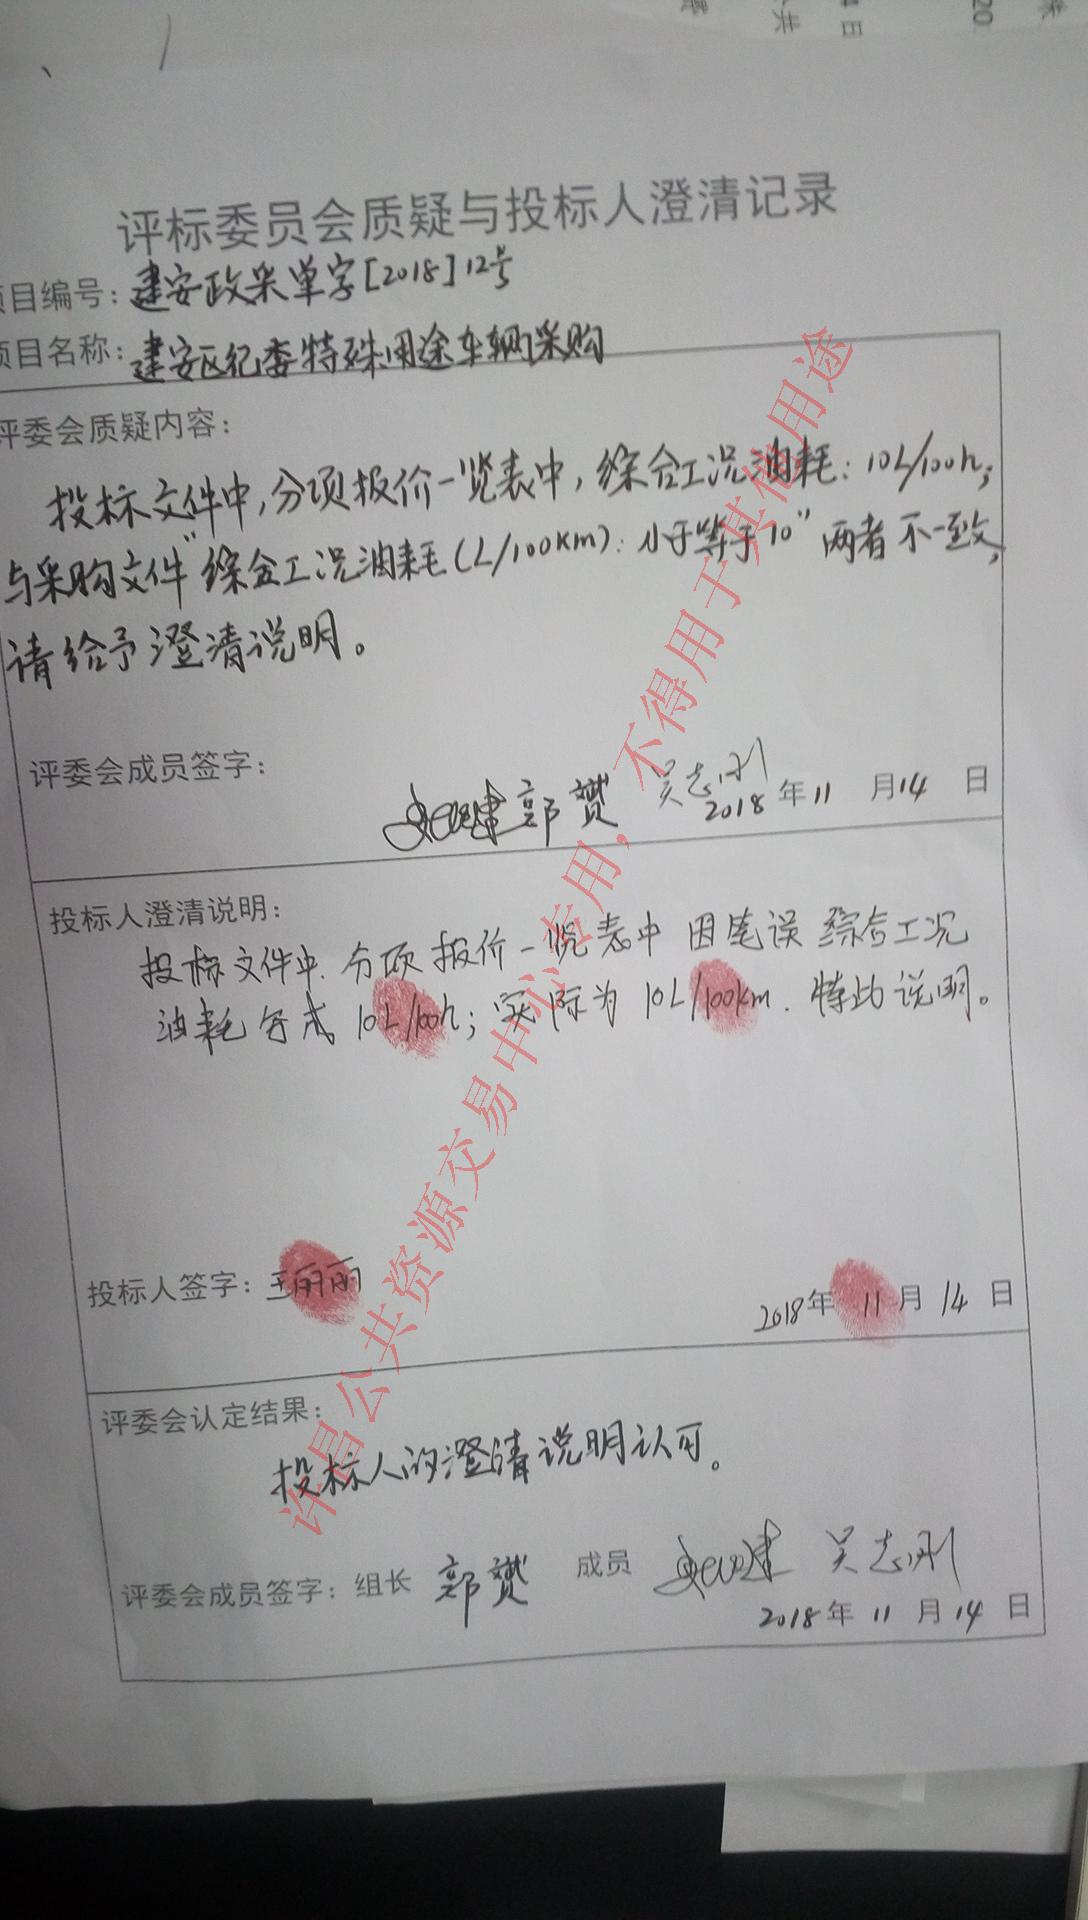 评标委员会质疑与投标人澄清记录
项目编号：建安政采单字[2018]12号
项目名称：建安区纪委特殊用途车辆采购
评委会质疑内容：
投标文件中，分项报价一览表中，综合工况油耗：10L/100h；
与采购文件“综合工况油耗（L/100km）：小于等于10”两者不一致，
请给予澄清说明。
评委会成员签字：
郭赟 吴志刚
2018年11月14日
投标人澄清说明：
投标文件中．分项报价一览表中因笔误综合工况
油耗写成10L/100h；实际为10L/100km．特此说明。
投标人签字：王丽丽
2018年11月14日
评委会认定结果：
投标人的澄清说明认可。
评委会成员签字：组长 郭赟 成员 吴志刚
2018年11月14日
许昌公共资源交易中心专用，不得用于其他用途